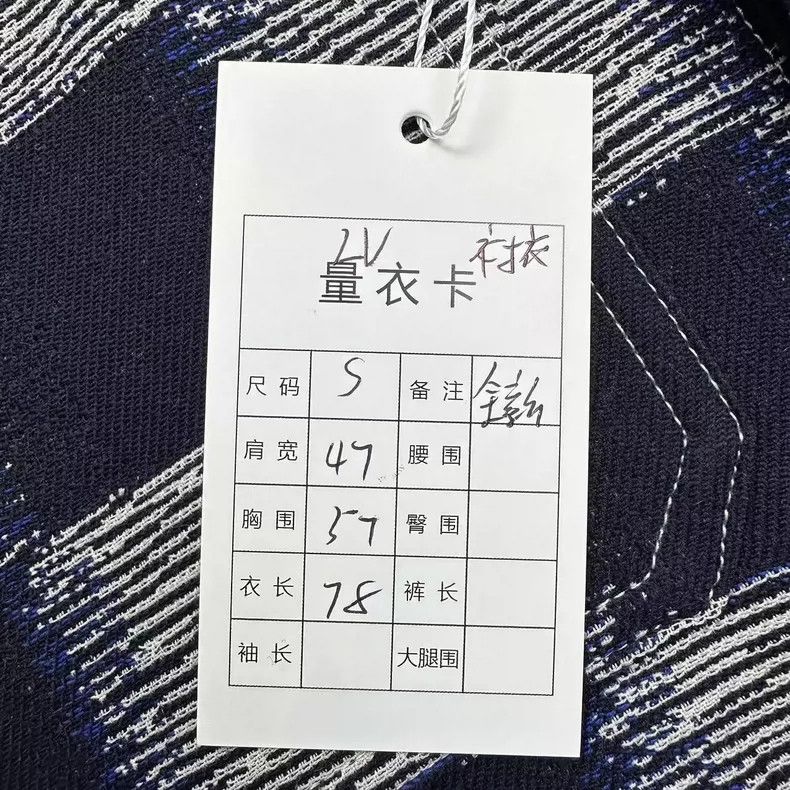 LV 衬衣
量衣卡
尺码 S 备注
肩宽 47 腰围
胸围 57 臀围
衣长 78 裤长
袖长 大腿围